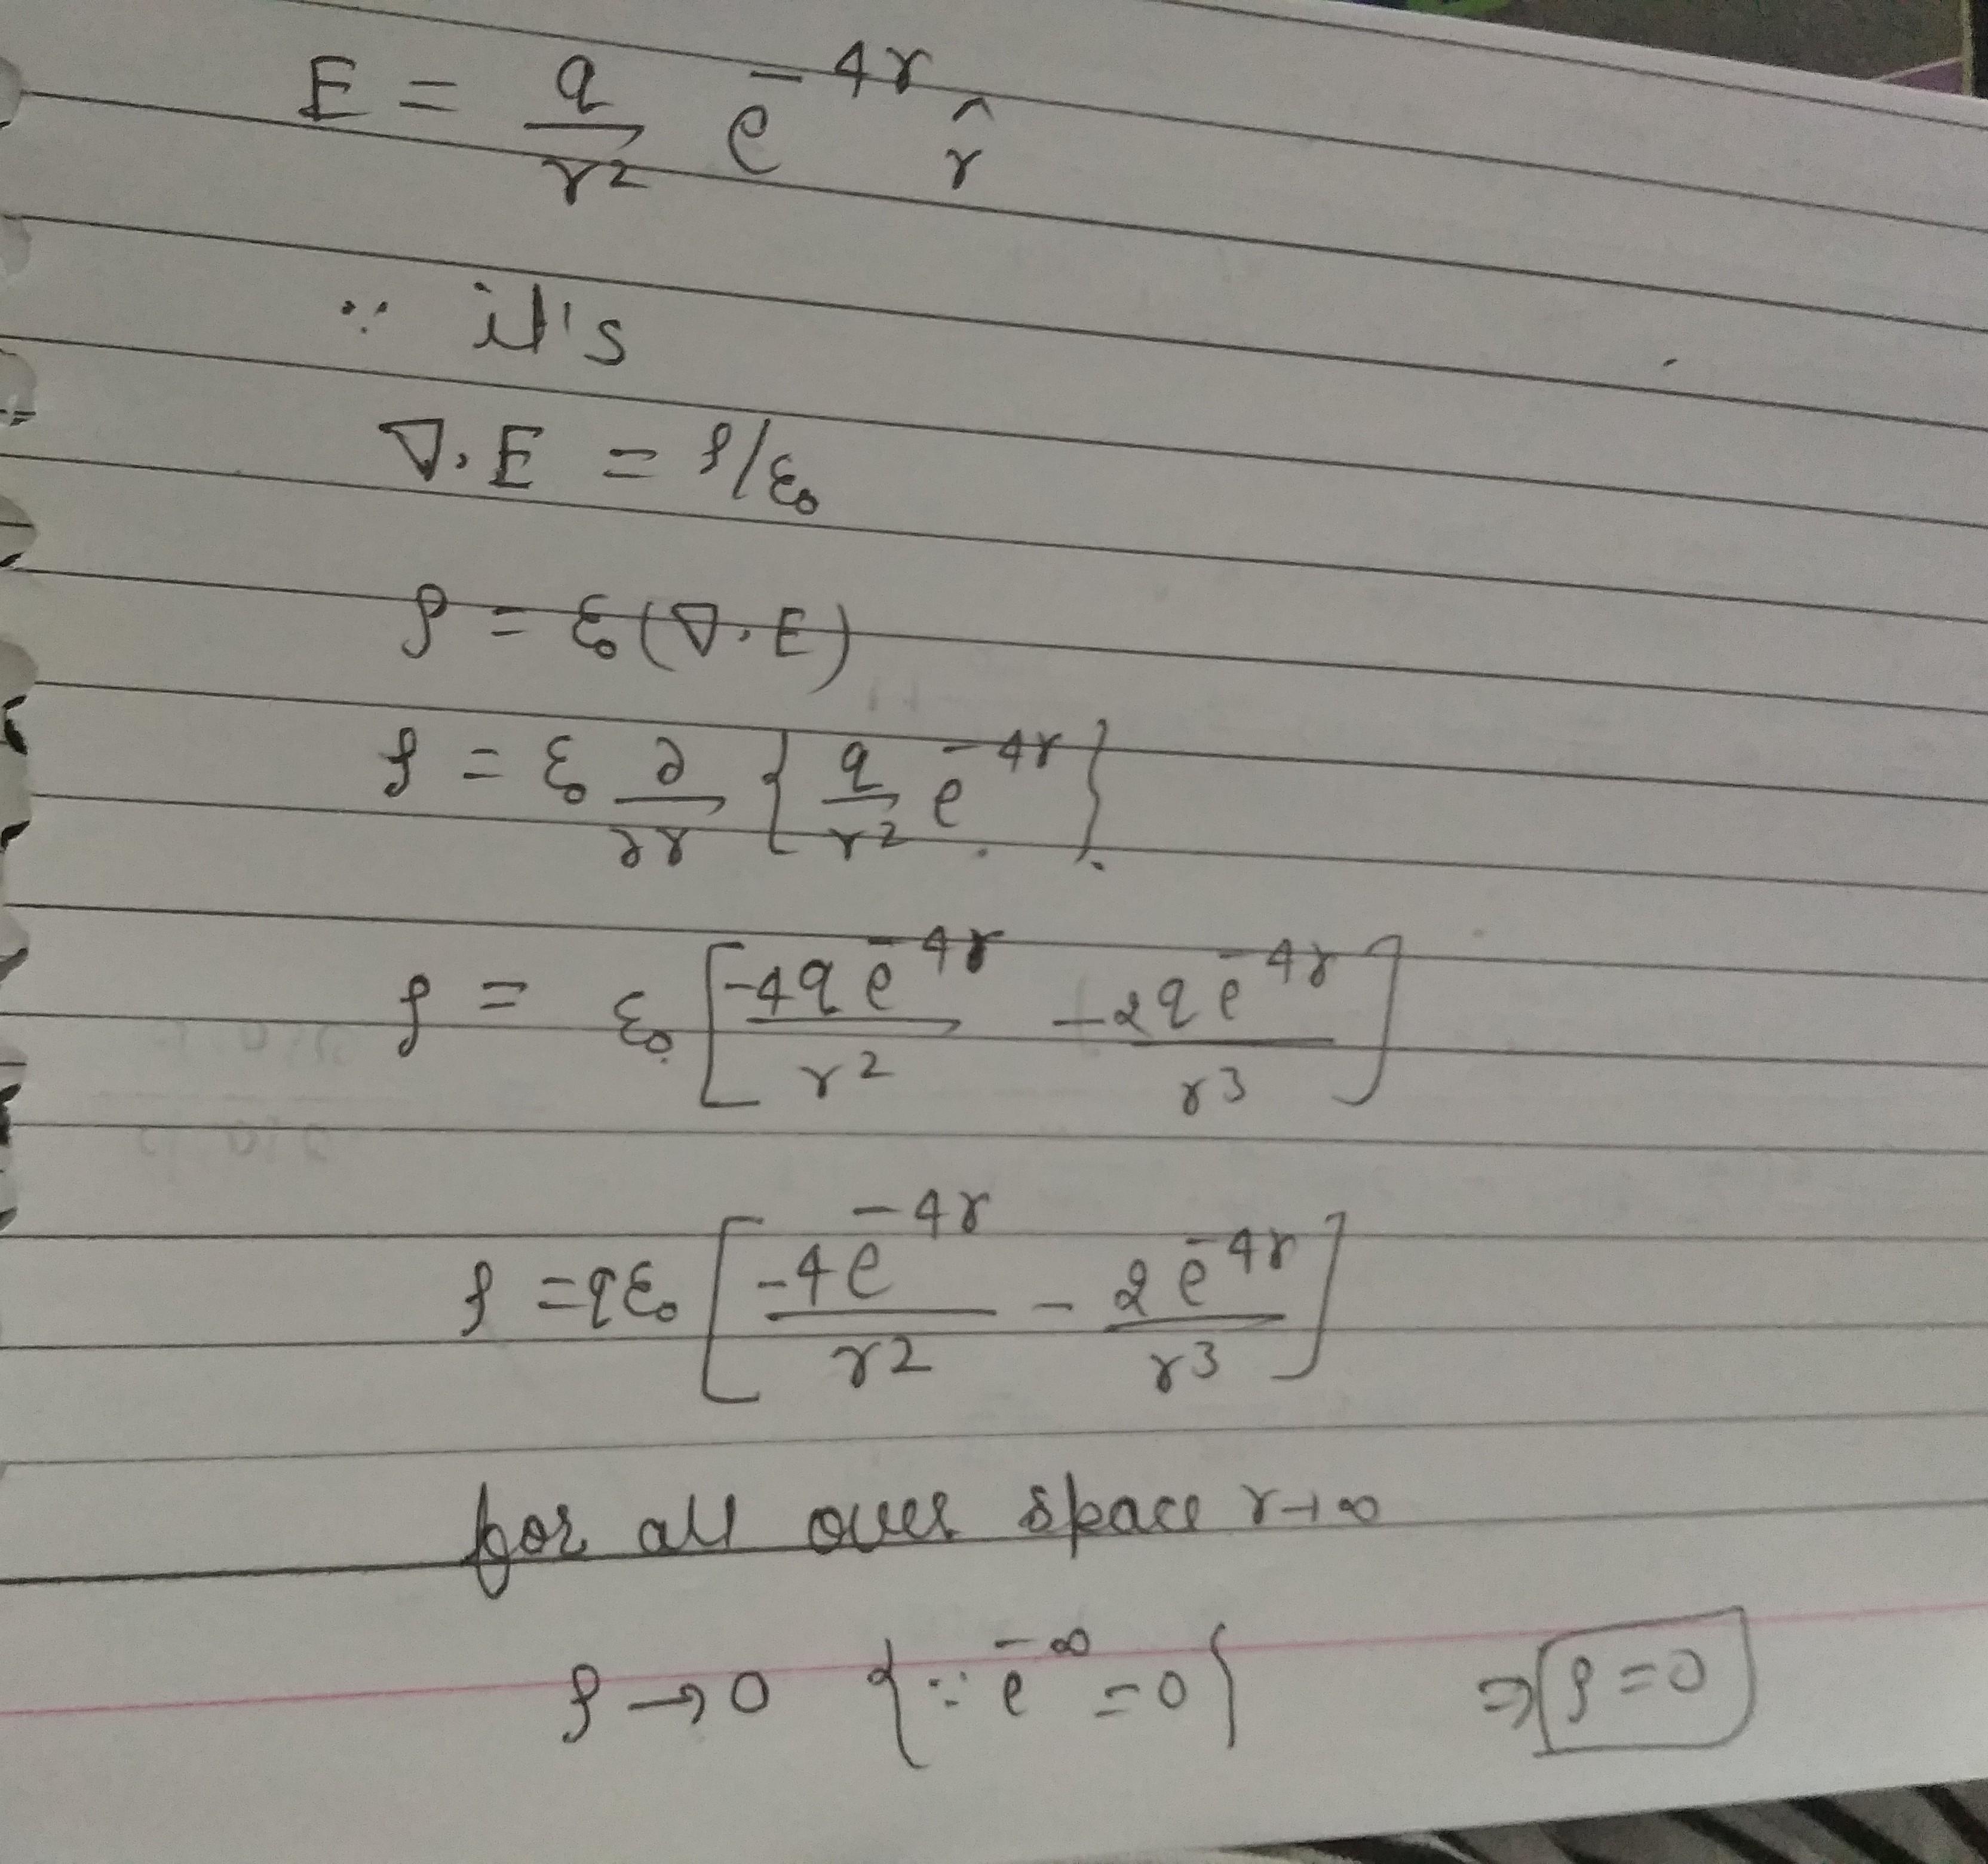 E = q/r² e^{-4r} r̂
∵ it's
∇.E = ρ/ε₀
ρ = ε₀(∇.E)
ρ = ε₀ ∂/∂r { q/r² e^{-4r} }
ρ = ε₀ [ -4qe^{-4r}/r² - 2qe^{-4r}/r³ ]
ρ = qε₀ [ -4e^{-4r}/r² - 2e^{-4r}/r³ ]
for all over space r→∞
ρ → 0 { ∵ e^{-∞} = 0 } ⇒ ρ = 0